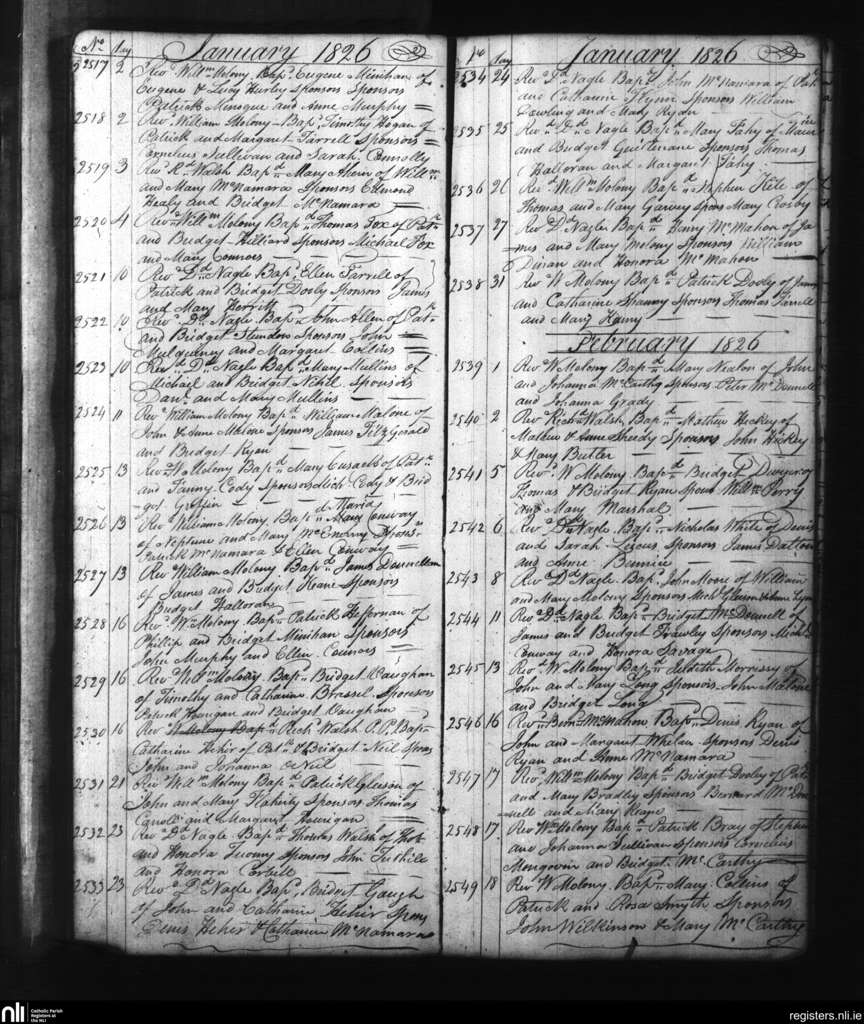 No. Day January 1826
2517 2 Revd. Willm Molony Bapd. Eugene Minihan of
Eugene & Lucy Hurley Sponsors Sponsors
Patrick Minogue and Anne Murphy
2518 2 Rev. William Molony Bapd. Timothy Hogan of
Patrick and Margaret Farrell Sponsors
Cornelius Sullivan and Sarah Connolly
2519 3 Revd. Rd. Walsh Bapd. Mary Ahern of Willm
and Mary McNamara Sponsors Edmond
Healy and Bridget McNamara
2520 4 Revd. Willm Molony Bapd. Thomas Fox of Patk
and Bridget Hilliard Sponsors Michael Fox
and Mary Connors
2521 10 Rev. Dd. Nagle Bapd. Ellen Farrell of
Patrick and Bridget Dooly Sponsors James
and Mary
2522 10 Rev. Dd. Nagle Bapd. John Allen of Patk
and Bridget Sponsors John
Mulqueeney and Margaret Collins
2523 10 Revd. Dd. Nagle Bapd. Mary Mullins of
Michael and Bridget Nihil Sponsors
Danl. and Mary Mullins
2524 11 Revd. William Molony Bapd. William Malone of
John & Anne Malone Sponsors James Fitzgerald
and Bridget Ryan
2525 13 Revd. W Molony Bapd. Mary Cusack of Patk
and Fanny Cody Sponsors Mich Cody & Brid
get Griffin
2526 13 Revd. William Molony Bapd. Maria Conway
of Neptune and Mary McEnerny Sponsrs
Patrick McNamara & Ellen Conway
2527 13 Revd. William Molony Bapd. James Donnellan
of James and Bridget Keane Sponsors
Bridget Halloran
2528 16 Revd. Wm Molony Bapd. Patrick Heffernan of
Phillip and Bridget Minihan Sponsors
John Murphy and Ellen Connors
2529 16 Revd. Willm Molony Bapd. Bridget Vaughan
of Timothy and Catharine Brassel Sponsors
Patrick Hourigan and Bridget Vaughan
2530 16 Revd. W Molony Bapd. Richd Walsh P.P. Bapd
Catharine Hehir of Pat & Bridget Neil Spons
John and Johanna Neil
2531 21 Revd. Willm Molony Bapd. Patrick Gleeson of
John and Mary Flahirty Sponsors Thomas
Carroll and Margaret Hourigan
2532 23 Revd. Dd. Nagle Bapd. Thomas Walsh of Thos
and Honora Twomy Sponsors John Tuohill
and Honora
2533 23 Revd. Dd. Nagle Bapd. Bridget Gough
of John and Catharine Hehir Spons
Denis Hehir & Catharine McNamara
No Day January 1826
2534 24 Revd. Dd. Nagle Bapd. John McNamara of Pat
and Catharine Flynn Sponsors William
Dowling and Mary Ryan
2535 25 Revd. Dd. Nagle Bapd. Mary Fahy of Maurice
and Bridget Sponsors Thomas
Halloran and Margaret Fahy
2536 26 Revd. Willm Molony Bapd. Stephen Kele of
Thomas and Mary Garvey Spons Mary Crosby
2537 27 Revd. Dd. Nagle Bapd. Mary McMahon of Ja
mes and Mary Molony Sponsors William
and Honora McMahon
2538 31 Revd. W Molony Bapd. Patrick Dooly of James
and Catharine Shawny Sponsors Thomas Farrell
and Mary
February 1826
2539 1 Revd. W Molony Bapd. Mary Nealon of John
and Johanna McCarthy Sponsors Peter McDonnell
and Johanna Grady
2540 2 Revd. Richd Walsh Bapd. Mathew Hickey of
Mathew & Anne Sheedy Sponsors John Hickey
& Mary Butler
2541 5 Revd. W Molony Bapd. Bridget Dwyer of
Thomas & Bridget Ryan Spons Willm Perry
and Mary Marshal
2542 6 Revd. Dd. Nagle Bapd. Nicholas White of Denis
and Sarah Sponsors James Dalton
and Anne
2543 8 Revd. Dd. Nagle Bapd. John Moore of William
and Mary Molony Sponsors Michl Gleeson & Anne Lyons
2544 11 Revd. Dd. Nagle Bapd. Bridget McDonnell of
James and Bridget Frawley Sponsors Michl
Conway and Honora Savage
2545 13 Revd. W Molony Bapd. Morrissy of
John and Mary Long Sponsors John Malone
and Bridget Long
2546 16 Revd. Bernd McMahon Bapd. Denis Ryan of
John and Margaret Whelan Sponsors Denis
Ryan and Anne McNamara
2547 17 Revd. Willm Molony Bapd. Bridget Dooley of Patk
and Mary Bradley Sponsors Bernard McDon
nell and Mary Keane
2548 17 Revd. Wm Molony Bapd. Patrick Bray of Stephen
and Johanna Sullivan Sponsors Cornelius
Mongovin and Bridget McCarthy
2549 18 Revd. W Molony Bapd. Mary Collins of
Patrick and Rosa Smyth Sponsors
John Wilkinson & Mary McCarthy
nli Catholic Parish
Registers at
the NLI
registers.nli.ie